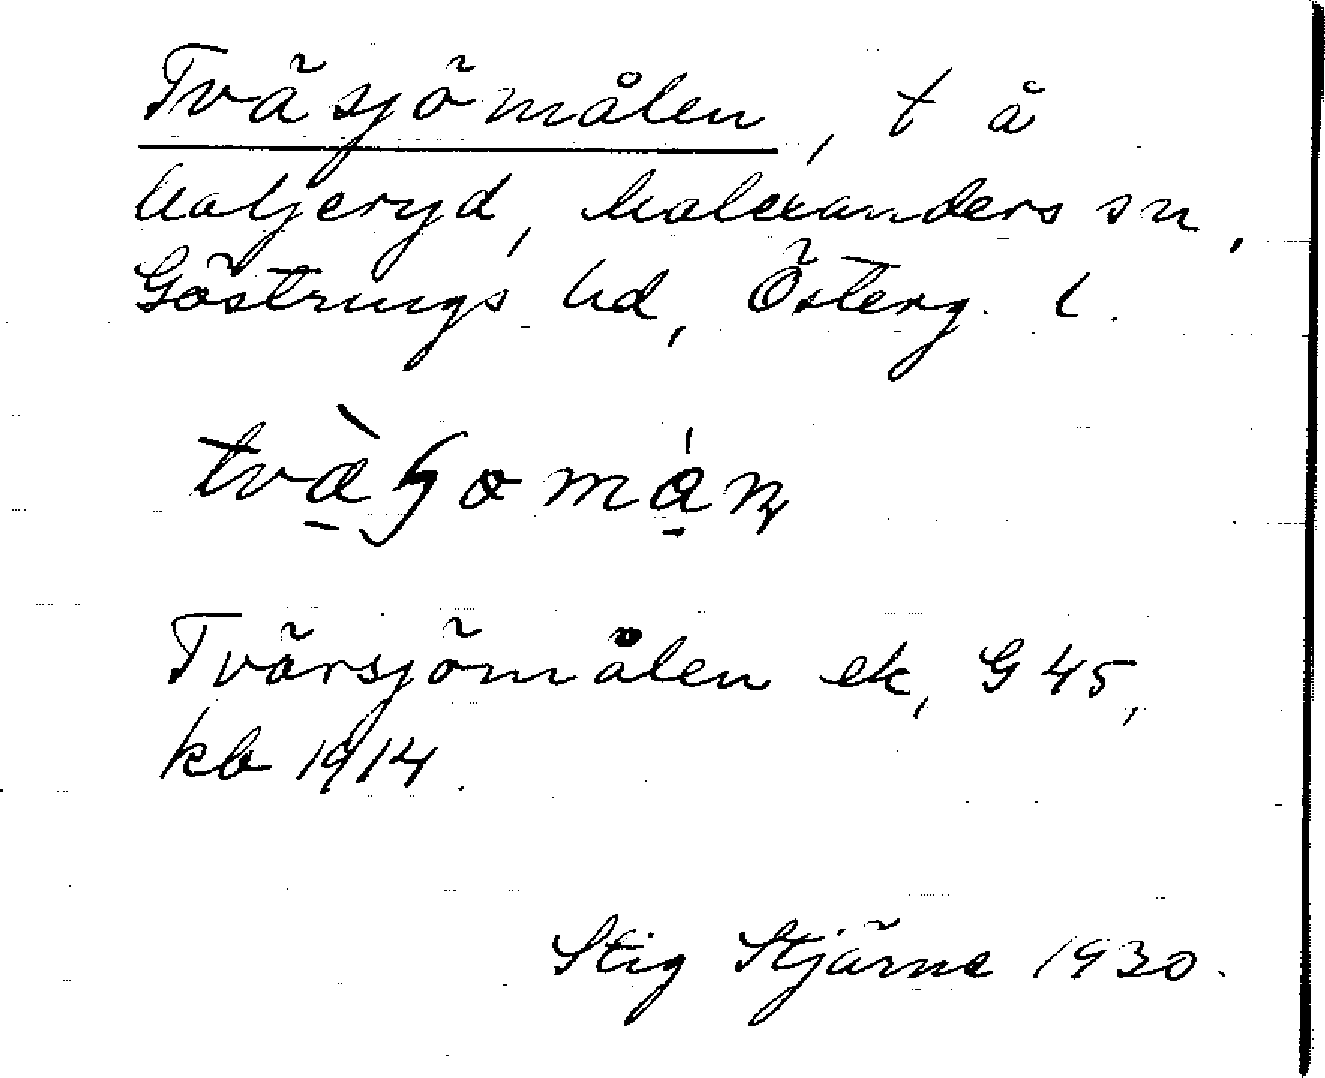 Tväsjömålen, t å
Haljeryd, Malexanders sn,
Göstrings hd, Österg. l.
Tvärsjömålen ek, G 45,
kb 1914.
Stig Stjärne 1930.